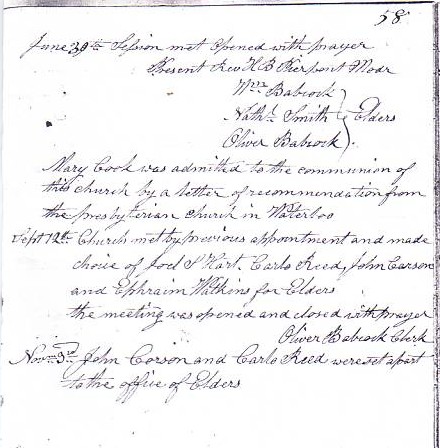 58
June 30th Session met opened with prayer
Present Rev H B Pierpont Modr
Wm Babcock
Nathl Smith } Elders
Oliver Babcock
Mary Cook was admitted to the communion of
this church by a letter of recommendation from
the presbyterian church in Waterloo
Sept 12th Church met by previous appointment and made
choice of Joel S Hart. Carlo Reed, John Carson
and Ephraim Watkins for Elders
the meeting was opened and closed with prayer
Oliver Babcock Clerk
Nov 3rd John Corson and Carlo Reed were set apart
to the office of Elders